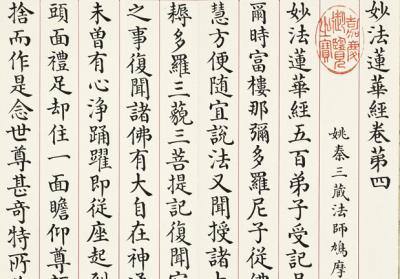 妙法蓮華經卷第四
嘉慶御覽之寶
姚秦三藏法師鳩摩
妙法蓮華經五百弟子受記品
爾時富樓那彌多羅尼子從佛
慧方便隨宜說法又聞授諸大
耨多羅三藐三菩提記復聞宿
之事復聞諸佛有大自在神通
未曾有心淨踊躍即從座起到
頭面禮足却住一面瞻仰尊顏
捨而作是念世尊甚奇特所為